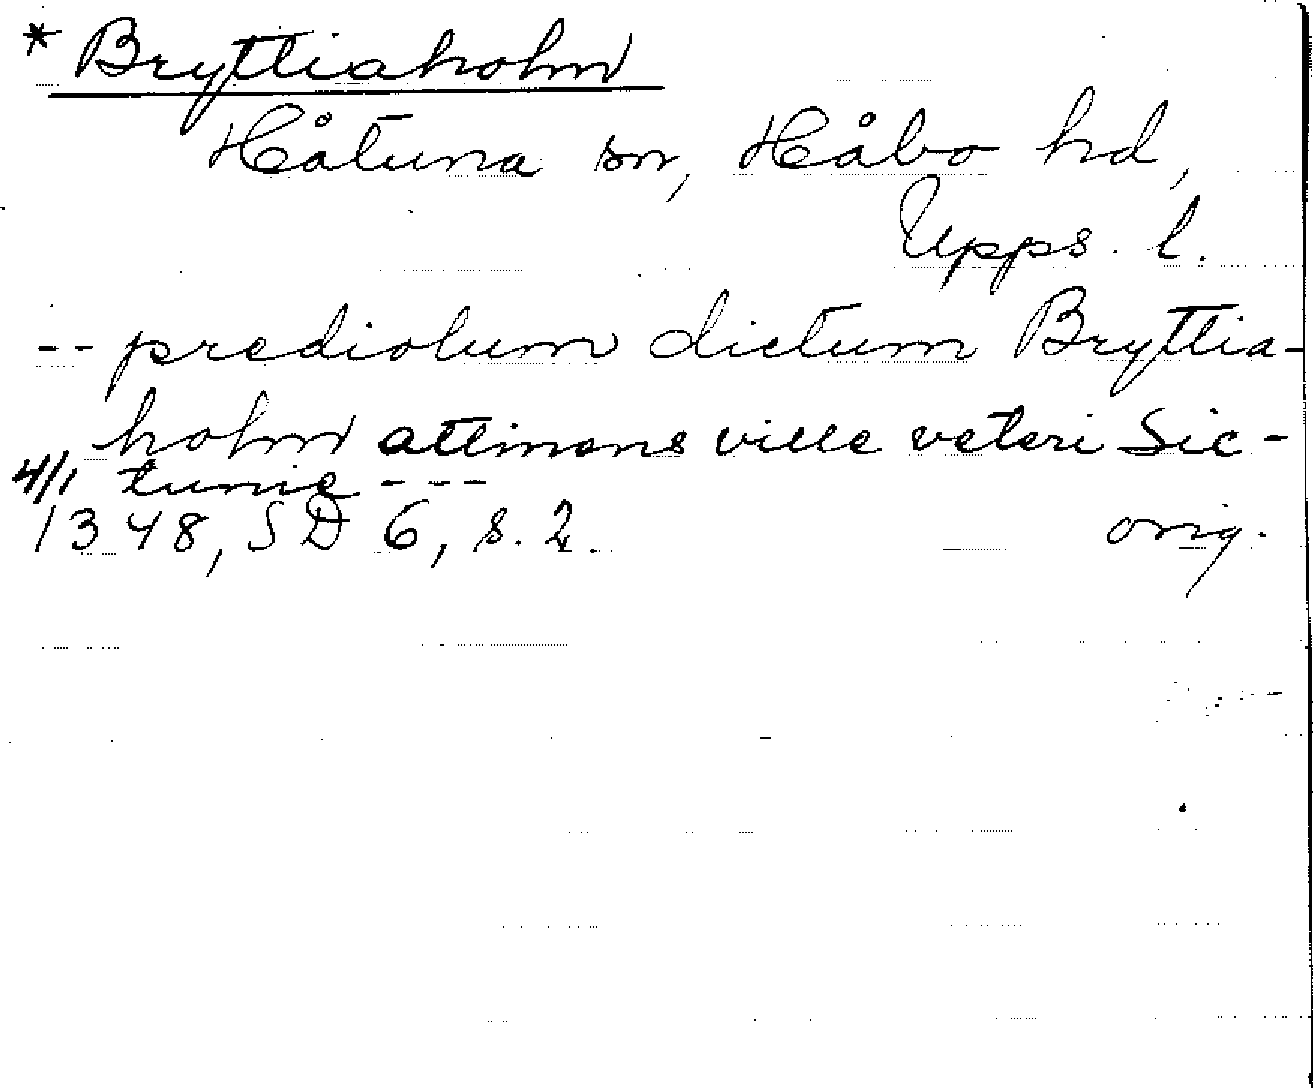 * Bryttiaholm
Håtuna sn, Håbo hd,
Upps. l.
-- prediolum dictum Bryttia-
holm attinens ville veteri Sic-
4/1 tunie ---
1348, SD 6, s. 2.
orig.